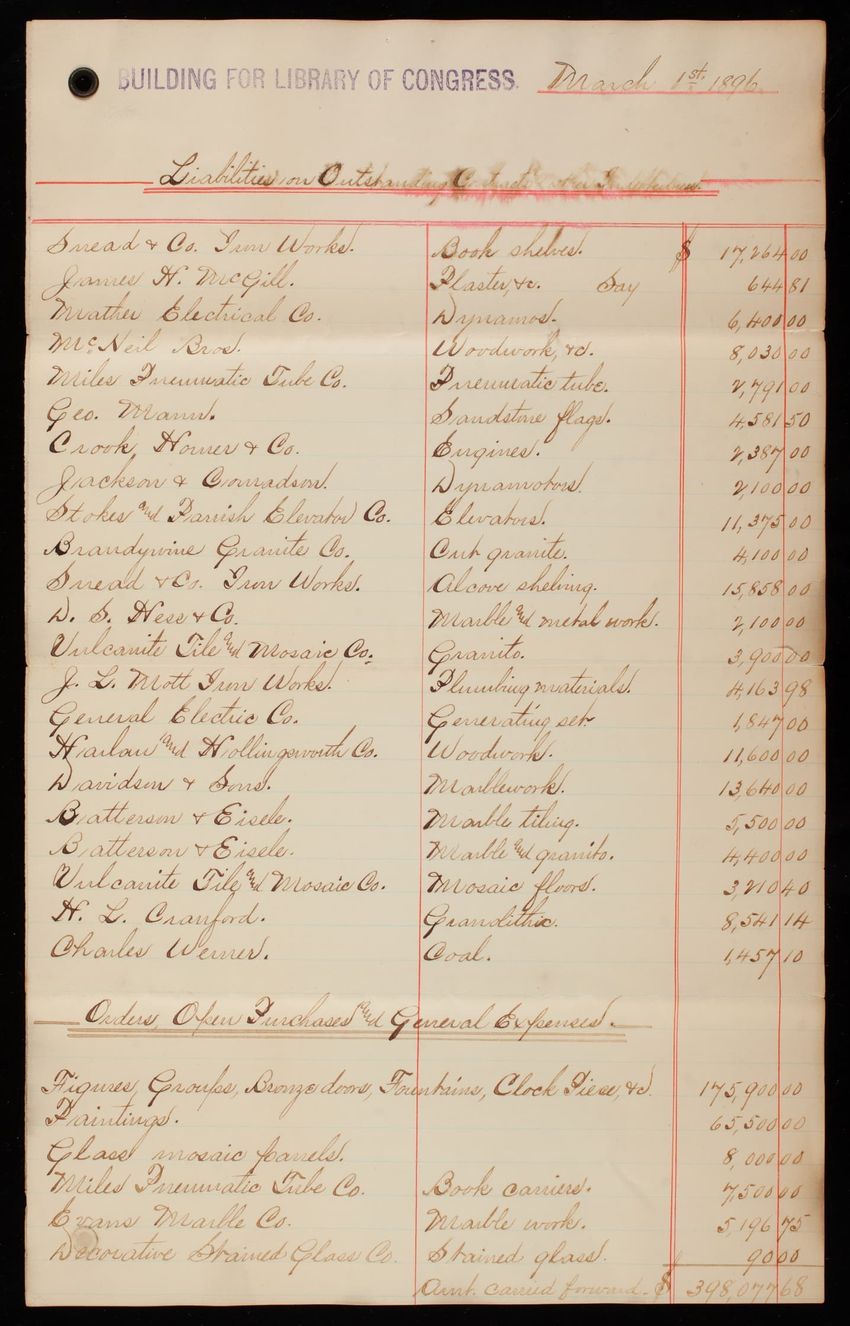 BUILDING FOR LIBRARY OF CONGRESS. March 1st. 1896.
Liabilities on Outstanding
Snead & Co. Iron Works. Book shelves. $ 17,264 00
James H. McGill. Plaster, &c. Say 644 81
Mather Electrical Co. Dynamos. 6,400 00
McNeil Bros. Woodwork, &c. 8,030 00
Miles Pneumatic Tube Co. Pneumatic tube. 2,791 00
Geo. Mann. Sandstone flags. 4,581 50
Crook, Horner & Co. Engines. 2,387 00
Jackson & Conradson. Dynamotors. 2,100 00
Stokes and Parrish Elevator Co. Elevators. 11,375 00
Brandywine Granite Co. Cut granite. 4,100 00
Snead & Co. Iron Works. Alcove shelving. 15,858 00
D. S. Hess & Co. Marble and metal work. 2,100 00
Vulcanite Tile and Mosaic Co. Granito. 3,900 00
J. L. Mott Iron Works. Plumbing materials. 4,163 98
General Electric Co. Generating set. 1,847 00
Harlan and Hollingsworth Co. Woodwork. 11,600 00
Davidson & Sons. Marblework. 13,640 00
Batterson & Eisele. Marble tiling. 5,500 00
Batterson & Eisele. Marble and granito. 4,400 00
Vulcanite Tile and Mosaic Co. Mosaic floors. 3,210 40
H. L. Cranford. Granolithic. 8,541 14
Charles Werner. Coal. 1,457 10
Orders, Open Purchases and General Expenses.
Figures, Groups, Bronze doors, Fountains, Clock Piece, &c. 175,900 00
Paintings. 65,500 00
Glass mosaic panels. 8,000 00
Miles Pneumatic Tube Co. Book carriers. 7,500 00
Evans Marble Co. Marble work. 5,196 75
Decorative Stained Glass Co. Stained glass. 90 00
Amt. carried forward. $ 398,077 68